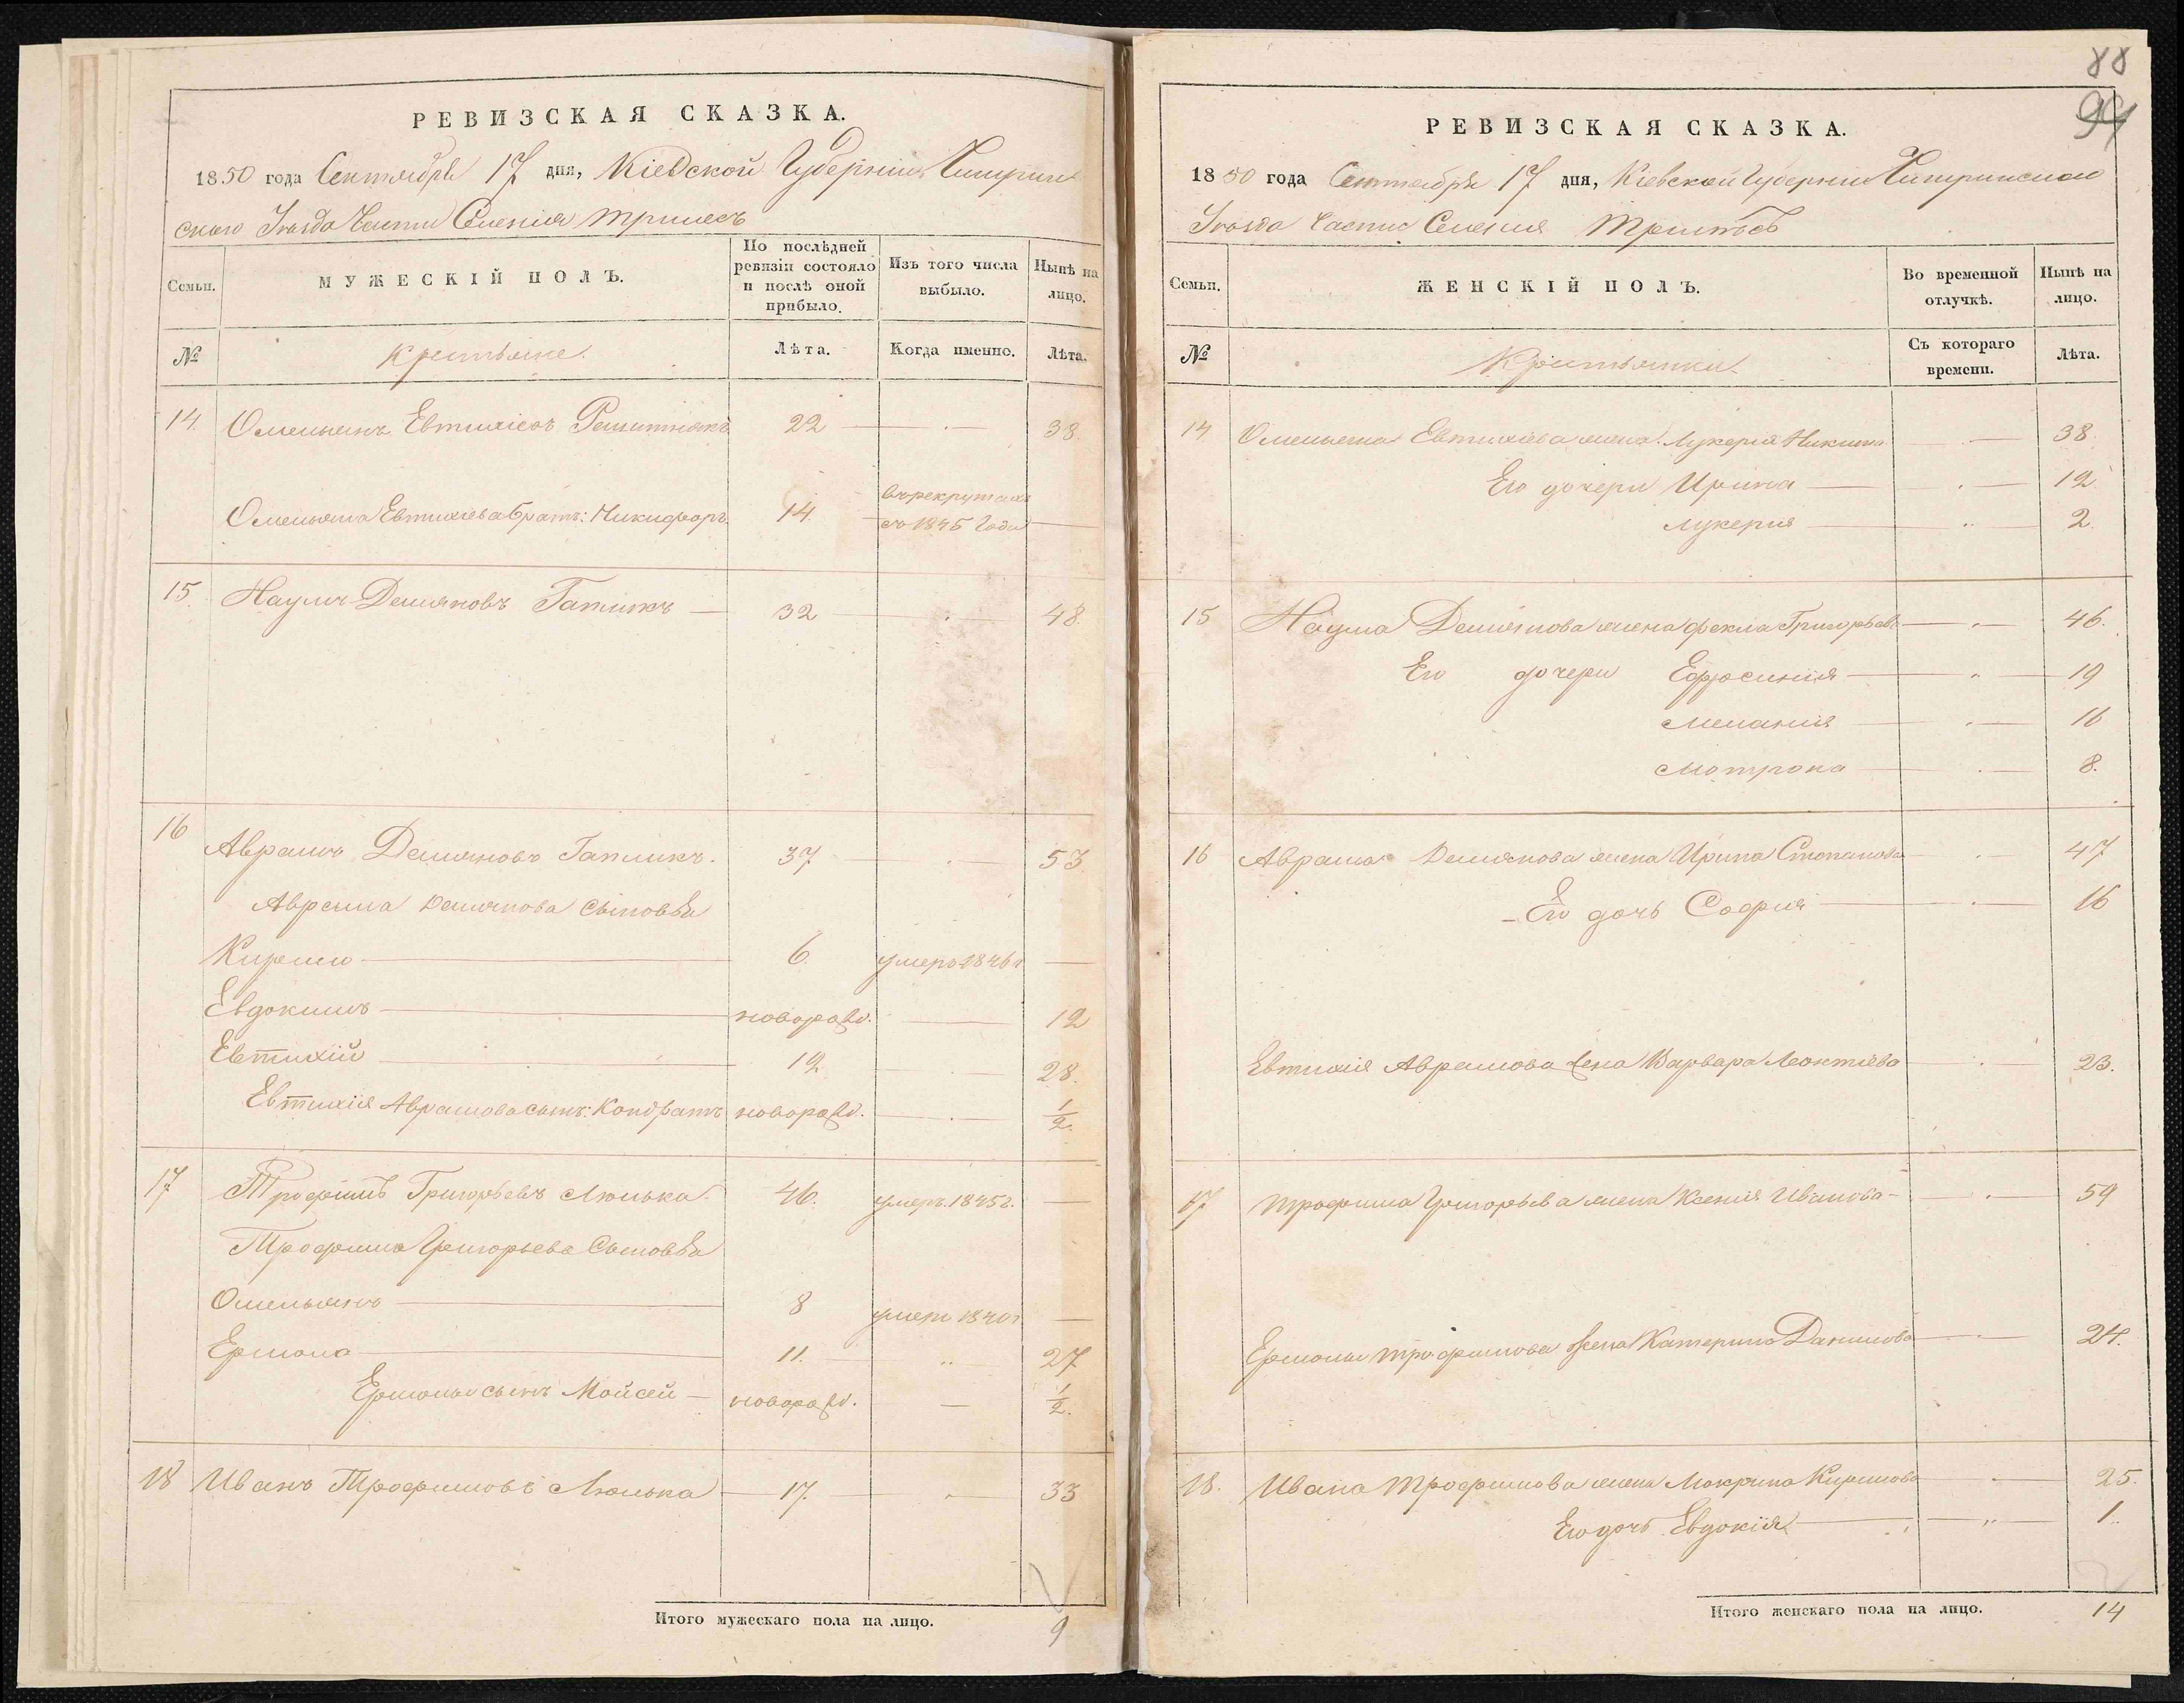 РЕВИЗСКАЯ СКАЗКА.
1850 года Сентября 17 дня, Кіевской Губерніи Чигрин
скаго Уезда Части Селенія Трилесъ
Семьи.
МУЖЕСКІЙ ПОЛЪ.
По послѣдней ревизіи состояло и послѣ оной прибыло.
Изъ того числа выбыло.
Нынѣ на лицо.
№
Крестьяне.
Лѣта.
Когда именно.
Лѣта.
14. Омельянъ Евтихіевъ 22 38.
Омельяна Евтихіева братъ: Никифоръ. 14. въ рекрутахъ съ 1845 года
15. Наумъ Демяновъ Гапликъ 32 48.
16 Аврамъ Демяновъ Гапликъ. 37 53.
Аврама Демянова сыновья
Кирило 6. умеръ 1846 г
Евдокимъ новорожд. 12
Евтихій 12 28.
Евтихія Аврамова сынъ: Кондратъ новорожд. 1/2.
17 Трофимъ Григорьевъ Люлька. 46. умеръ. 1845 г.
Трофима Григорьева Сыновья
Омельянъ 8 умеръ 1840 г
Ермола 11. 27
Ермолы сынъ Мойсей новорожд. 1/2.
18 Иванъ Трофимовъ Люлька 17. 33
Итого мужескаго пола на лицо. 9
88
94
РЕВИЗСКАЯ СКАЗКА.
1850 года Сентября 17 дня, Кіевской Губерніи Чигринскаго
Уезда Части Селенія Трилѣсъ
Семьи.
ЖЕНСКІЙ ПОЛЪ.
Во временной отлучкѣ.
Нынѣ на лицо.
№
Крестьянки.
Съ котораго времени.
Лѣта.
14 Омельяна Евтихіева жена. Лукерія Никит 38.
Его дочери Ирина 12
Лукерія 2.
15 Наума Демянова жена Фекла Григорьев 46.
Его дочери Ефросинія 19
Меланія 16
Мотрона 8.
16 Аврама Демянова жена Ирина Степанова 47
Его дочь Софія 16
Евтихія Аврамова жена Варвара Леонтіева 23.
17 Трофима Григорьева жена Ксенія Иванова 59
Ермолы Трофимова жена Катерина Данилова 24.
18. Ивана Трофимова жена Мокрина Кирилова 25.
Его дочь Евдокія 1.
Итого женскаго пола на лицо. 14